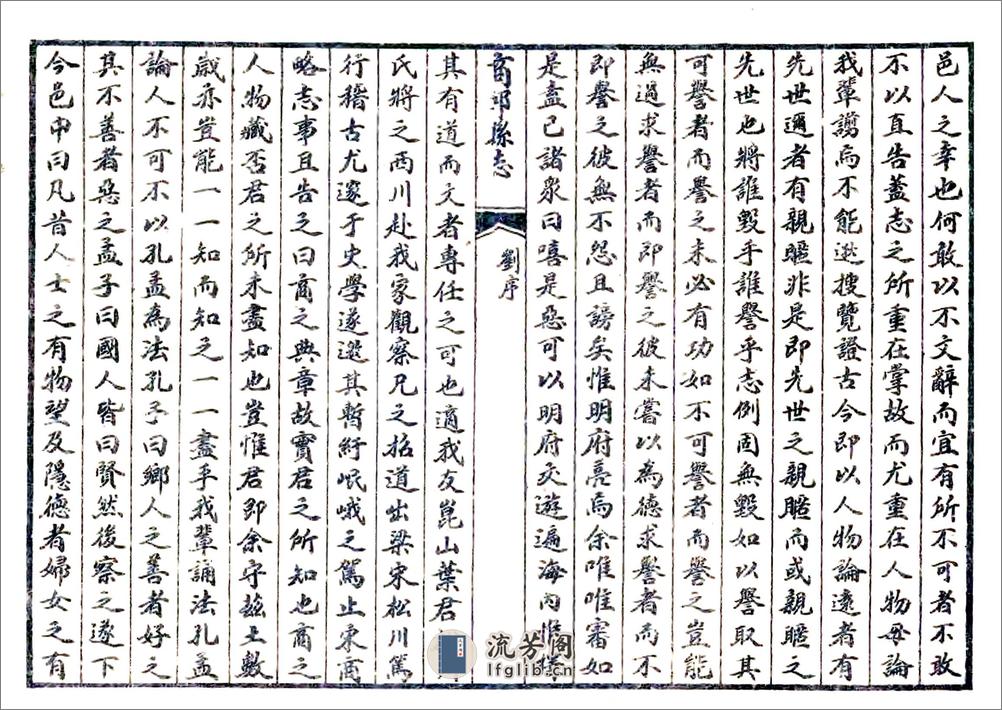 邑人之幸也何敢以不文辭而宜有所不可者不敢
不以直告蓋志之所重在掌故而尤重在人物毋論
我輩謭焉不能遜搜覽證古今即以人物論遠者有
先世邇者有親暱非是即先世之親暱而或親暱之
先世也將誰毀乎誰譽乎志例固無毀如以譽取其
可譽者而譽之未必有功如不可譽者而譽之豈能
無過求譽者而即譽之彼未嘗以為德求譽者而不
即譽之彼無不怨且謗矣惟明府亮焉余唯唯審如
是盍已諸眾曰嘻是惡可以明府交遊遍海內惟擇
商邱縣志
劉序
其有道而文者專任之可也適我友崑山葉君
氏將之西川赴我家觀察兄之招道出梁宋松川篤
行稽古尤邃于史學遂邀其暫紆岷峨之駕止東商
略志事且告之曰商之典章故實君之所知也商之
人物臧否君之所未盡知也豈惟君即余守茲土數
歲亦豈能一一知而知之一一盡乎我輩誦法孔孟
論人不可不以孔孟為法孔子曰鄉人之善者好之
其不善者惡之孟子曰國人皆曰賢然後察之遂下
令邑中曰凡昔人士之有物望及隱德者婦女之有
流芳阁
lfglib.cn